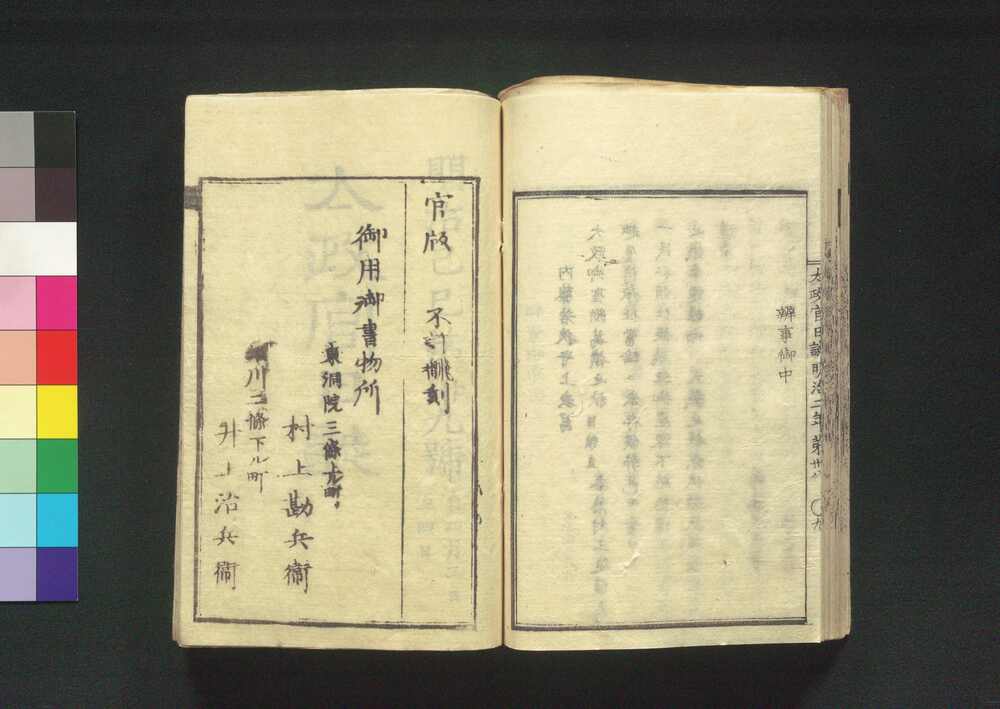 辨事御中
太政官日誌明治二年 第卅八 〇九
官版 不許飜刻
御用御書物所
東洞院三條上ル町
村上勘兵衞
堀川二條下ル町
井上治兵衞